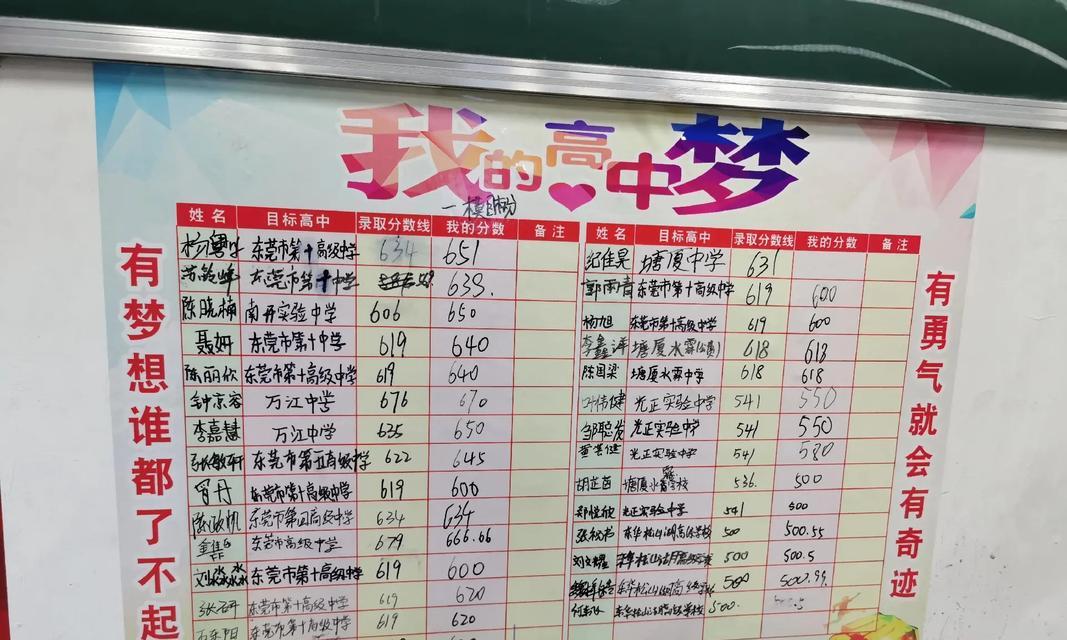 我的高中梦
有梦想谁都了不起
有勇气就会有奇迹
姓名 目标高中 录取分数线 我的分数 备注
东莞市第十高级中学 634 651
东莞市第十中学 638.
陈晓楠 南开实验中学 606 650
聂妍 东莞市第十中学 619 640
陈丽欣 东莞市第十高级中学 619 640
钟京容 万江中学 676 670
李嘉慧 万江中学 635 650
张敏轩 东莞市第五高级中学 622 645
肖丹 东莞市第十高级中学 619 600
东莞市第四高级中学 634 634
东莞市高级中学 679 666.66
刘淼淼 东莞市第十高级中学 619 600
东莞市第十高级中学 619 620
东莞市第十高级中学 619 620
姓名 目标高中 录取分数线 我的分数 备注
纪佳昊 塘厦中学 631
郭雨青 东莞市第十高级中学 619 600
杨旭 东莞市第十高级中学 619 600
李鑫洋 塘厦水霖(公费) 618 618
陈国梁 塘厦水霖中学 618 618
叶伟健 光正实验中学 541 550
邹聪发 光正实验中学 541 550
光正实验中学 541 580
胡芷茵 536. 500
郑悦欣 光正实验中学 541 500
东华松山湖高级学校 500 500.55
刘文耀 东华松山湖高级学校 500 500.5
500 500.99
500.